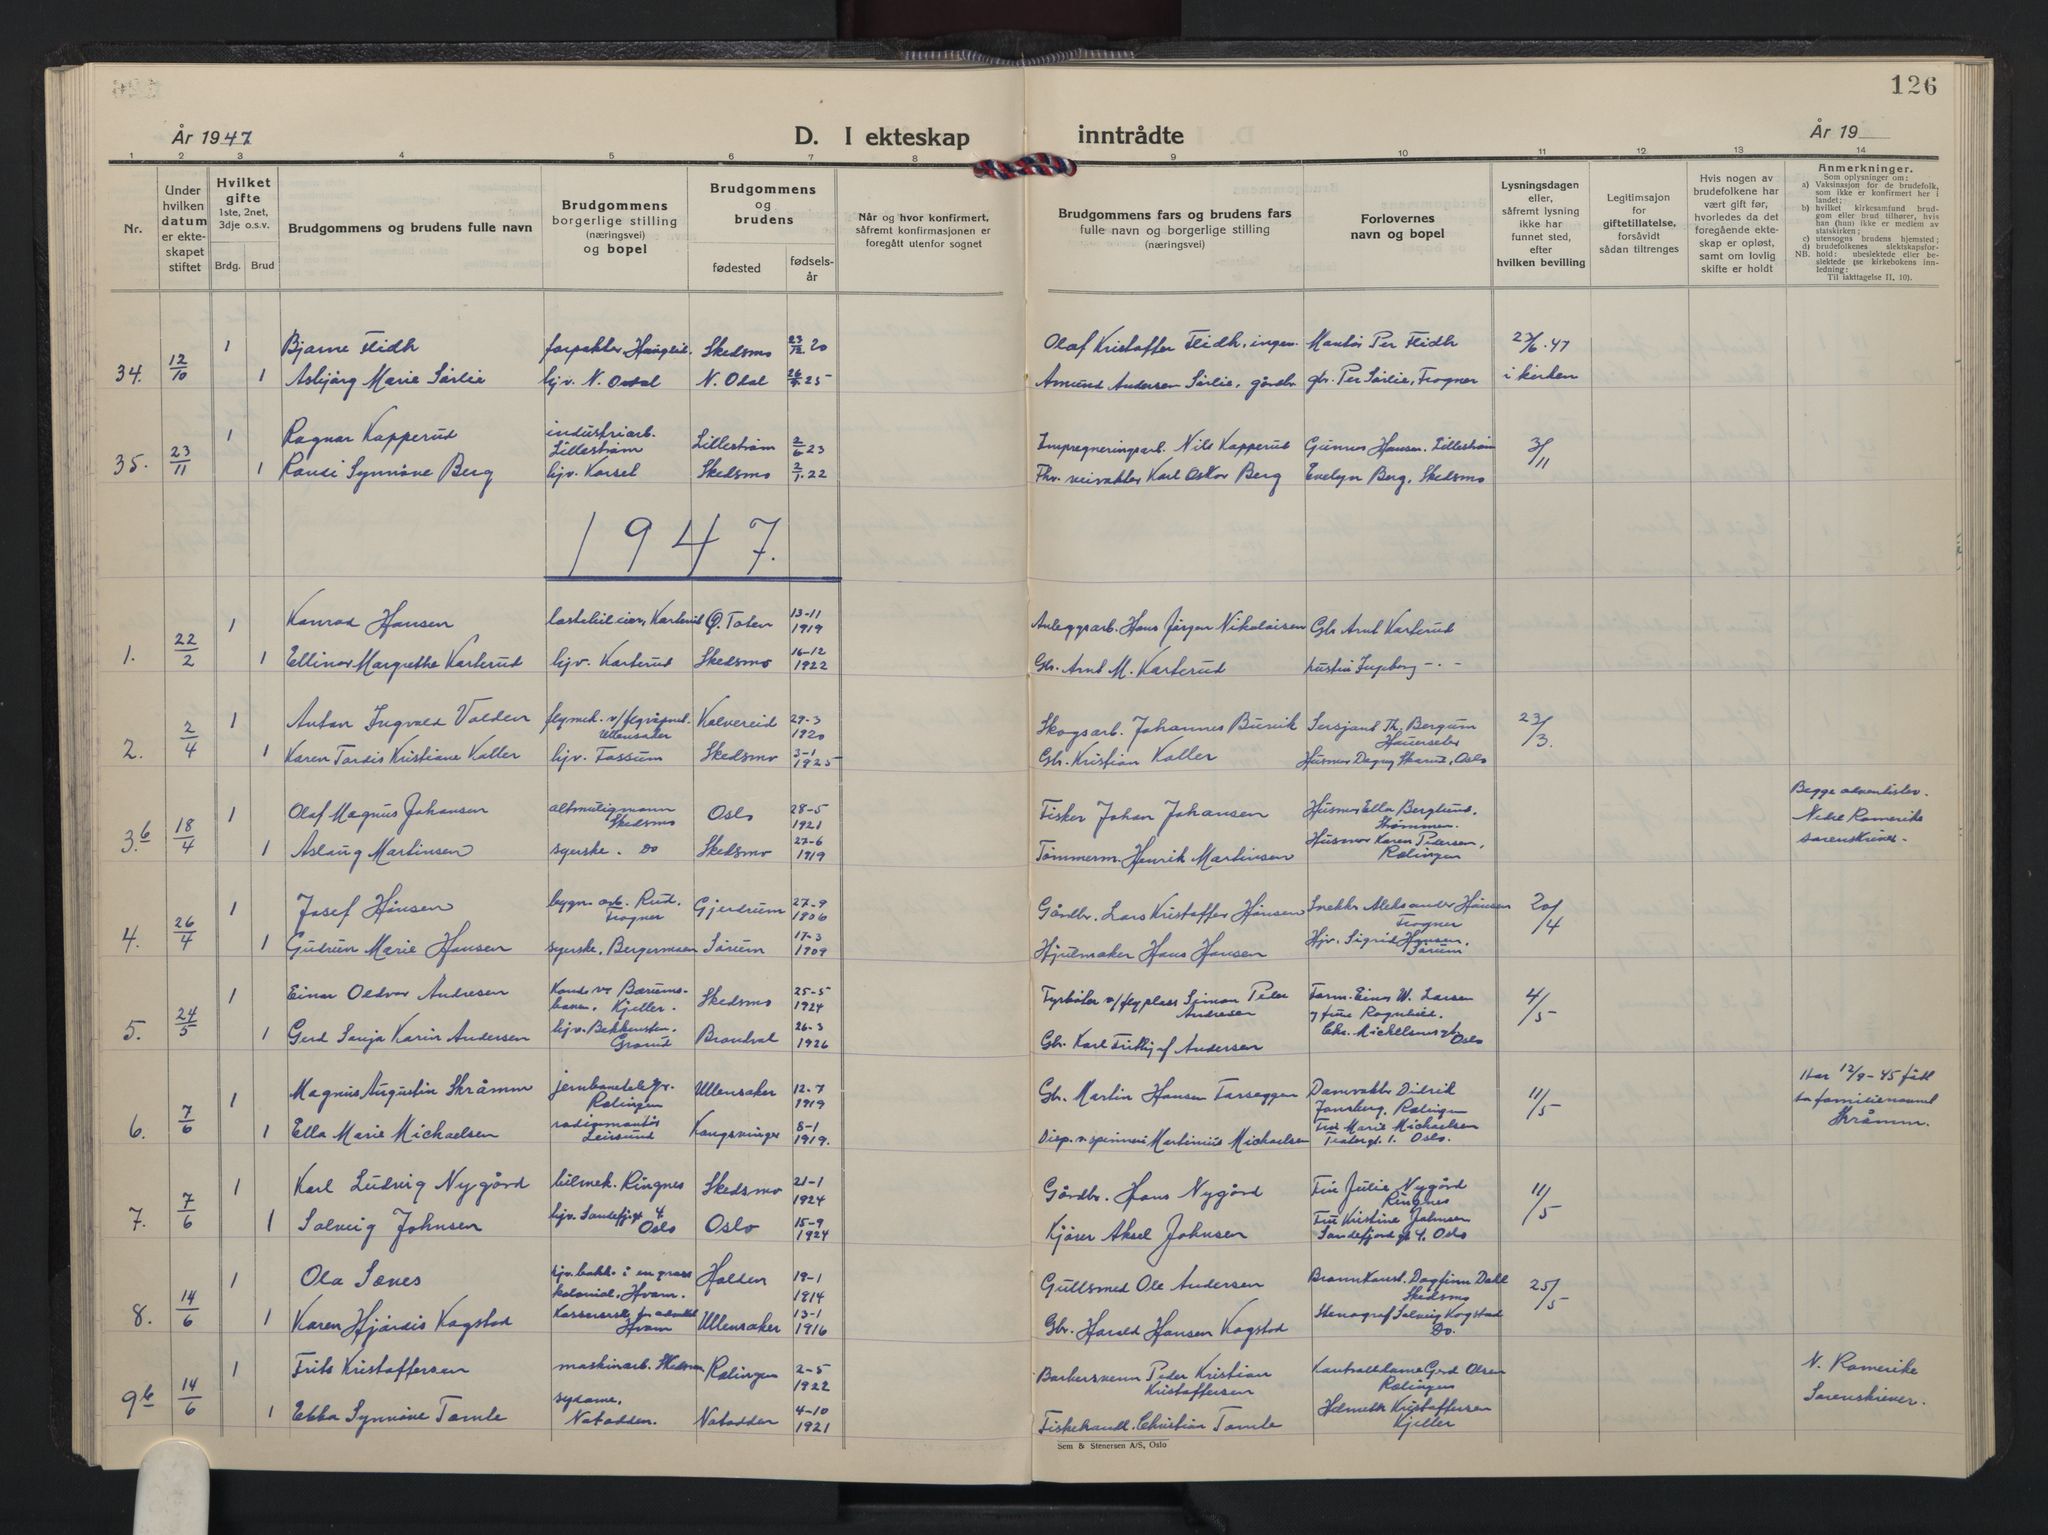 126
År 1947
D. I ekteskap inntrådte
År 19
1 2 3 4 5 6 7 8 9 10 11 12 13 14
Nr.
Under hvilken datum er ekteskapet stiftet
Hvilket gifte
1ste, 2net, 3dje o.s.v.
Brdg. Brud
Brudgommens og brudens fulle navn
Brudgommens borgerlige stilling (næringsvei) og bopel
Brudgommens og brudens
fødested
fødselsår
Når og hvor konfirmert, såfremt konfirmasjonen er foregått utenfor sognet
Brudgommens fars og brudens fars fulle navn og borgerlige stilling (næringsvei)
Forlovernes navn og bopel
Lysningsdagen eller, såfremt lysning ikke har funnet sted, efter hvilken bevilling
Legitimasjon for giftetillatelse, forsåvidt sådan tiltrenges
Hvis nogen av brudefolkene har vært gift før, hvorledes da det foregående ekteskap er opløst, samt om lovlig skifte er holdt
Anmerkninger.
Som oplysninger om:
a) Vaksinasjon for de brudefolk, som ikke er konfirmert her i landet;
b) hvilket kirkesamfund brudgom eller brud tilhører, hvis han (hun) ikke er medlem av statskirken;
c) utensogns brudens hjemsted;
d) brudefolkenes slektskapsforhold: ubeslektede eller beslektede (se kirkebokens innledning:
NB. Til iakttagelse II, 10).
34. 12/10 1 Bjarne Flidh forpakter Skedsmo 23/12 20 Olaf Kristoffer Flidh, Per Flidh 23/6.47
1 Asbjørg Marie Sørlie hjv. N. Odal N. Odal 25 Amund Andersen Sørlie, gårdbr. gbr. Per Sørlie, Frogner i kirken
35. 23/11 1 Ragnar Kapperud industriarb. Lillestrøm Lillestrøm 2/6 23 Impregneringsarb. Nils Kapperud Gunnar Hansen, Lillestrøm 3/11
1 Randi Synnøve Berg hjv. Skedsmo 2/1 22 Fhv. Karl Oskar Berg Evelyn Berg, Skedsmo
1947.
1. 22/2 1 Konrad Hansen lastebileier, Karterud Ø. Toten 13-11 1919 Anleggsarb. Hans Jørgen Nikolaisen Gbr. Arnt Karterud
1 Ellinor Margrethe Karterud hjv. Karterud Skedsmo 16-12 1922 Gbr. Arnt M. Karterud hustru Ingeborg - " -
2. 2/4 1 Anton Ingvald Valden flymek. v/ Ullensaker Kolvereid 29-3 1920 Skogsarb. Johannes Sersjant Th. Bergum 23/3.
1 Karen Tordis Kristiane Koller hjv. Fossum Skedsmo 3-1 1925 Gbr. Kristian Koller Husmor Dagny Oslo
3.b 18/4 1 Olaf Magnus Johansen altmuligmann Skedsmo Oslo 28-5 1921 Fisker Johan Johansen Husmor Ella Berglund, Strømmen. Begge adventister. Nedre Romerike sorenskriver.
1 Aslaug Martinsen syerske. Do Skedsmo 27-6 1919 Tømmerm. Henrik Martinsen Husmor Karen Pedersen, Rælingen
4. 26/4 1 Josef Hansen bygn. arb. Rud. Frogner Gjerdrum 27-9 1906 Gårdbr. Lars Kristoffer Hansen Snekker Aleksander Hansen Frogner 20/4
1 Gudrun Marie Hansen syerske, Bergermoen Sørum 17-3 1909 Hjulmaker Hans Hansen Hjv. Sigrid Hansen. Sørum
5. 24/5 1 Einar Oldvar Andresen Kond. v/ Bærumsbanen, Kjeller. Skedsmo 25-5 1924 Fyrbøter v/ flyplass Simon Peder Andresen Form. Einar W. Larsen og frue Ragnhild. 4/5
1 Gerd Sonja Karin Andersen hjv. Bekkensten. Grorud Brandval 26-3 1926 Gbr. Karl Fritjof Andersen Chr. Michelsens gt Oslo
6. 7/6 1 Magnus Augustin Skråmm Rælingen Ullensaker 12-7 1919 Gbr. Martin Hansen Damvokter Didrik Rælingen 11/5 Har 12/9-45 fått familienavnet Skråmm.
1 Ella Marie Michaelsen radiomontør Leirsund Kongsvinger 8-1 1919. Disp. v. spinneri Martinius Michaelsen Fru Marie Michaelsen Teatergt. 1. Oslo.
7. 7/6 1 Karl Ludvig Nygård bilmek. Ringnes Skedsmo 21-1 1924 Gårdbr. Hans Nygård Fru Julie Nygård Ringnes 11/5
1 Solveig Johnsen hjv. Sandefj.gt 4. Oslo Oslo 15-9 1924 Kjører Aksel Johnsen Fru Kristine Johnsen Sandefjord gt 4. Oslo
8. 14/6 1 Ola Sanes kolonial, Hvam. Halden 19-1 1914 Gullsmed Ole Andersen Brannkonst. Dagfinn Dahl Skedsmo 25/5
1 Karen Hjørdis Kogstad Kassererske Hvam Ullensaker 13-1 1916 Gbr. Harald Hansen Kogstad Stenograf Solveig Kogstad Do.
9b 14/6 1 Frits Kristoffersen maskinarb. Skedsmo Rælingen 2-5 1922 Barbersvenn Peder Kristian Kristoffersen Kontordame Gerd Olsen Rælingen N. Romerike Sorenskriver.
1 Ebba Synnøve Tomle sydame, Notodden. Notodden 4-10 1921 Fiskehandl. Christian Tomle Kristoffersen Kjeller
Sem & Stenersen A/S, Oslo